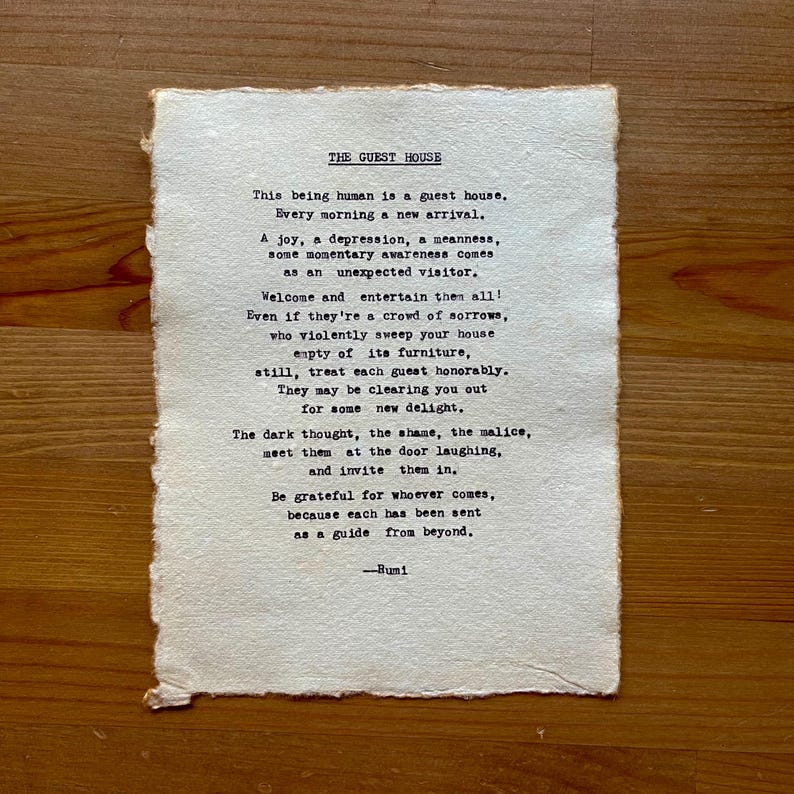 THE GUEST HOUSE
This being human is a guest house.
Every morning a new arrival.
A joy, a depression, a meanness,
some momentary awareness comes
as an unexpected visitor.
Welcome and entertain them all!
Even if they're a crowd of sorrows,
who violently sweep your house
empty of its furniture,
still, treat each guest honorably.
They may be clearing you out
for some new delight.
The dark thought, the shame, the malice,
meet them at the door laughing,
and invite them in.
Be grateful for whoever comes,
because each has been sent
as a guide from beyond.
--Rumi